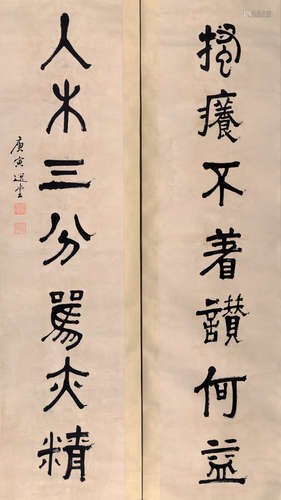 搔癢不著讚何益
入木三分罵亦精
庚寅 選堂